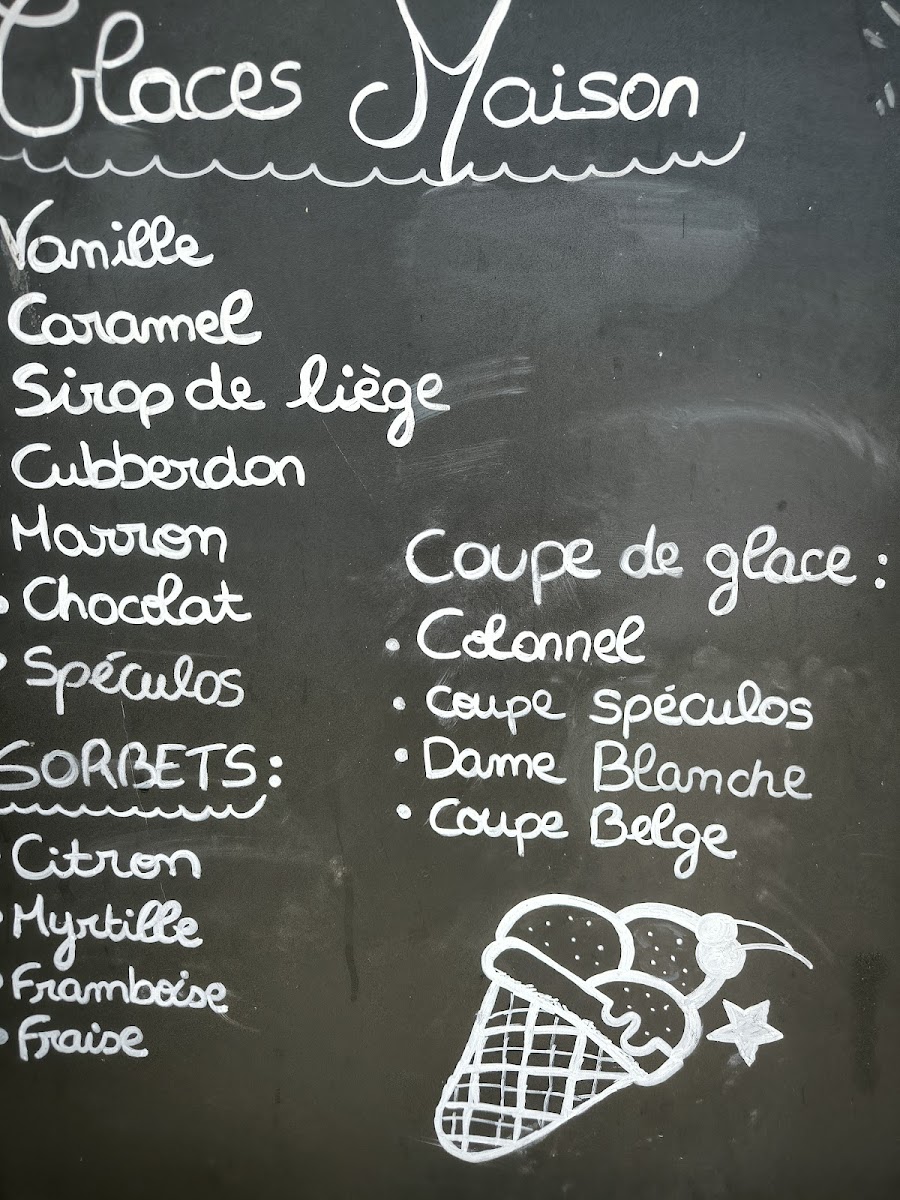 Glaces Maison
Vanille
Caramel
Sirop de liège
Cubberdon
Marron
• Chocolat
• Spéculos
SORBETS:
Citron
• Myrtille
• Framboise
• Fraise
Coupe de glace :
• Colonnel
• Coupe Spéculos
• Dame Blanche
• Coupe Belge